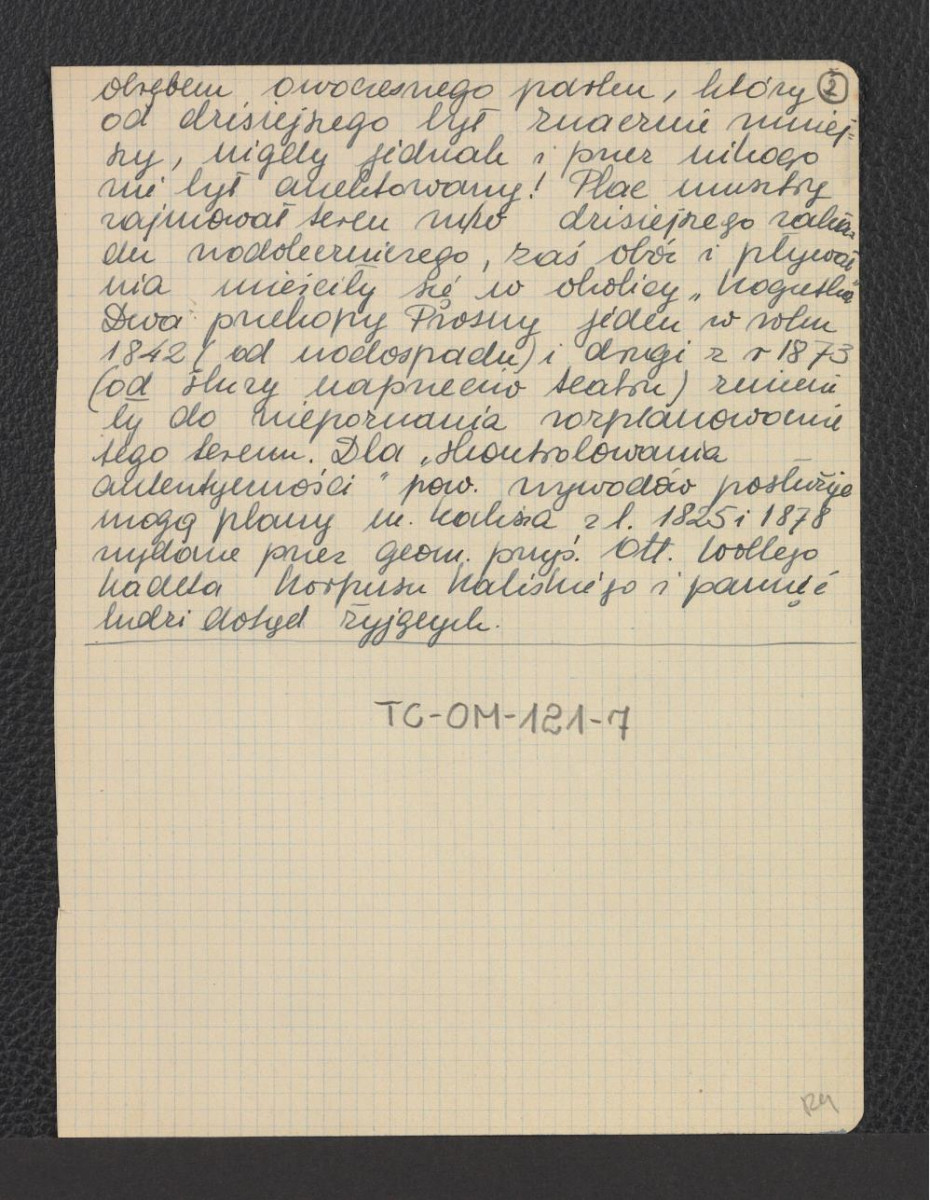 obrębem owoczesnego parku, który ②
od dzisiejszego był znacznie mniej=
szy, nigdy jednak i przez nikogo
nie był anektowany! Plac musztry
zajmował teren m/w dzisiejszego zakła=
du wodoleczniczego, zaś obóz i pływal
nia mieściły się w okolicy „Kogutka"
Dwa przekopy Prosny jeden w roku
1842 (od wodospadu) i drugi z r 1873
(od śluzy naprzeciw teatru) zmieni
ły do niepoznania rozplanowanie
tego terenu. Dla „skontrolowania
autentyczności" pow. wywodów posłużyć
mogą plany m. Kalisza z l. 1825 i 1878
wydane przez geom. przys. Ott. Wollego
kadeta Korpusu Kaliskiego i pamięć
ludzi dotąd żyjących.
TC-OM-121-7